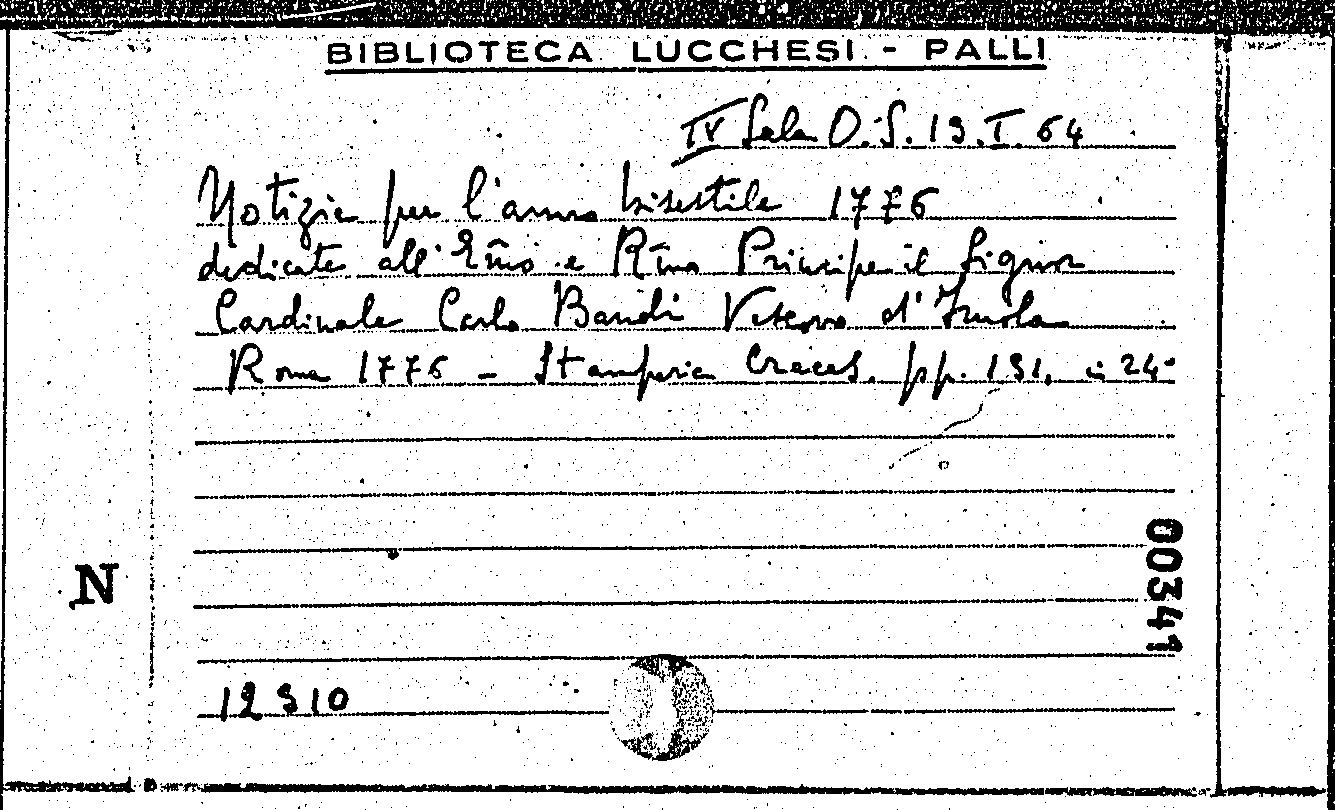 BIBLIOTECA LUCCHESI - PALLI
IV Sala O.S. 19.I.64
Notizie per l'anno bisestile 1776
dedicate all'Emo e Rmo Principe il Signor
Cardinale Carlo Bandi Vescovo d'Imola
Roma 1776 - Stamperia Cracas. pp. 191. in 24°
00341
N
12910